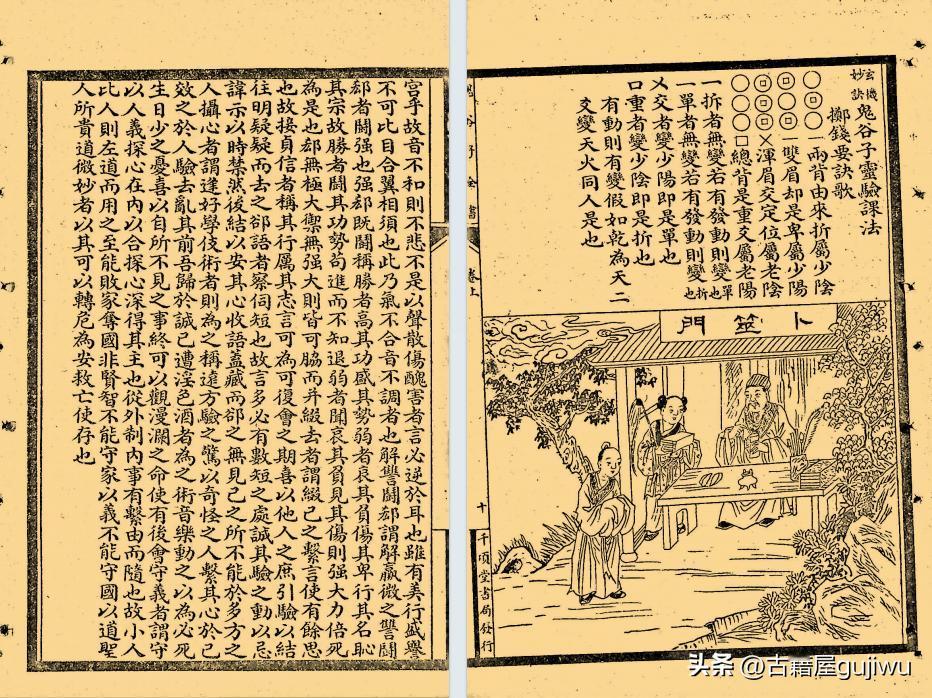 玄機
妙訣
鬼谷子靈驗課法
擲錢要訣歌
一兩背由來折屬少陰
一雙眉却是卑屬少陽
×渾眉交定位屬老陰
□總背是重爻屬老陽
一折者無變若有發動則變單也
一單者無變若有發動則變折也
乂交者變少陽即是單也
口重者變少陰即是折也
有動則有變假如乾為天二
爻變天火同人是也
卜筮門
卷上
十
千頃堂書局發行
宮乎故音不和則不悲不是以聲散傷醜害者言必逆於耳也雖有美行盛譽
不可比目合翼相須也此乃氣不合音不調者也解讐鬪郄謂解羸微之讐鬪
郄者鬪强也强郄既鬪稱勝者高其功盛其勢弱者哀其負傷其卑行其名恥
其宗故勝者鬪其功勢苟進而不知退弱者聞哀其負見其傷則强大力倍死
為是也郄無極大禦無强大則皆可脇而并綴去者謂綴已之繫言使有餘思
也故接貞信者稱其行厲其志言可為可復會之期喜以他人之庶引驗以結
往明疑疑而去之郤語者察伺短也故言多必有數短之處誠其驗之動以忌
諱示以時禁然後結以安其心收語蓋藏而郤之無見己之所不能於多方之
人攝心者謂逢好學伎術者則為之稱遠方驗之驚以奇怪之人繫其心於己
效之於人驗去亂其前吾歸於誠己遭淫色酒者為之術音樂動之以為必死
生日少之憂喜以自所不見之事終可以觀漫瀾之命使有後會守義者謂守
以人義探心在內以合探心深得其主也從外制內事有繫由而隨也故小人
比人則左道而用之至能敗家奪國非賢智不能守家以義不能守國以道聖
人所貴道微妙者以其可以轉危為安救亡使存也
头条 @古籍屋gujiwu